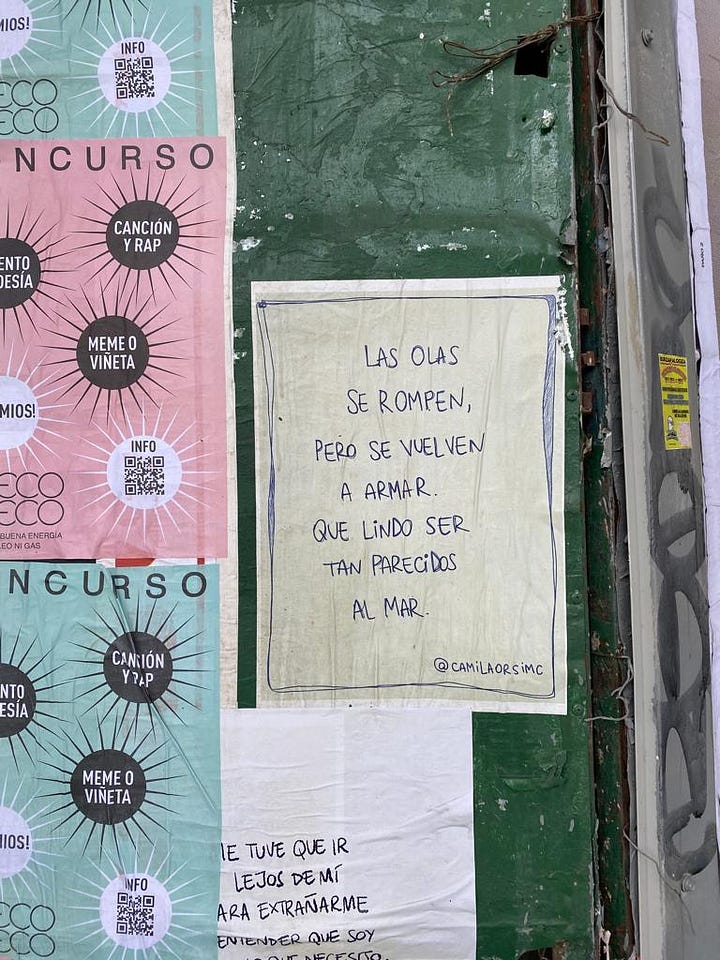 MIOS!
INFO
ECO
ECO
NCURSO
CANCIÓN
Y RAP
ENTO
OESÍA
MEME O
VIÑETA
MIOS!
INFO
ECO
ECO
BUENA ENERGÍA
LEO NI GAS
NCURSO
CANCIÓN
Y RAP
NTO
ESÍA
MEME O
VIÑETA
MIOS!
INFO
ECO
ECO
LAS OLAS
SE ROMPEN,
PERO SE VUELVEN
A ARMAR.
QUE LINDO SER
TAN PARECIDOS
AL MAR.
@CAMILAORSIMC
ME TUVE QUE IR
LEJOS DE MÍ
ARA EXTRAÑARME
ENTENDER QUE SOY
LO QUE NECESITO.